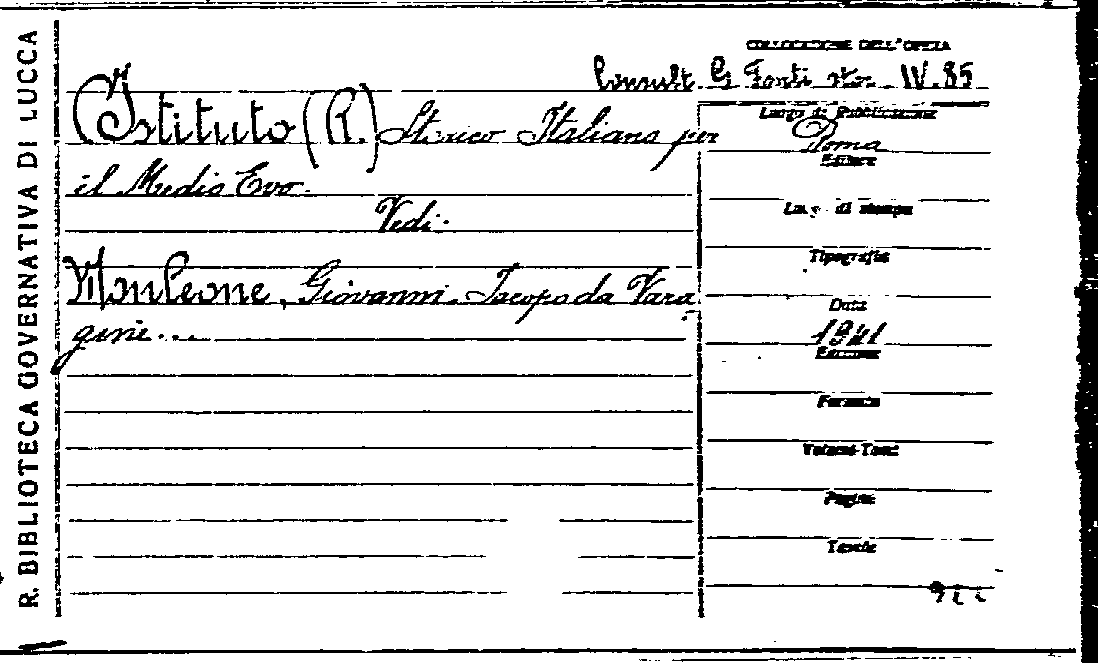 R. BIBLIOTECA GOVERNATIVA DI LUCCA
COLLOCAZIONE DELL'OPERA
Consult. G Fonti stor. IV. 85
Istituto (R.) Storico Italiano per
il Medio Evo.
Vedi:
Monleone, Giovanni. Iacopo da Vara
gine...
Luogo di Pubblicazione
Roma
Editore
Luogo di stampa
Tipografia
Data
1941
Edizione
Formato
Volumi-Tomi
Pagine
Tavole